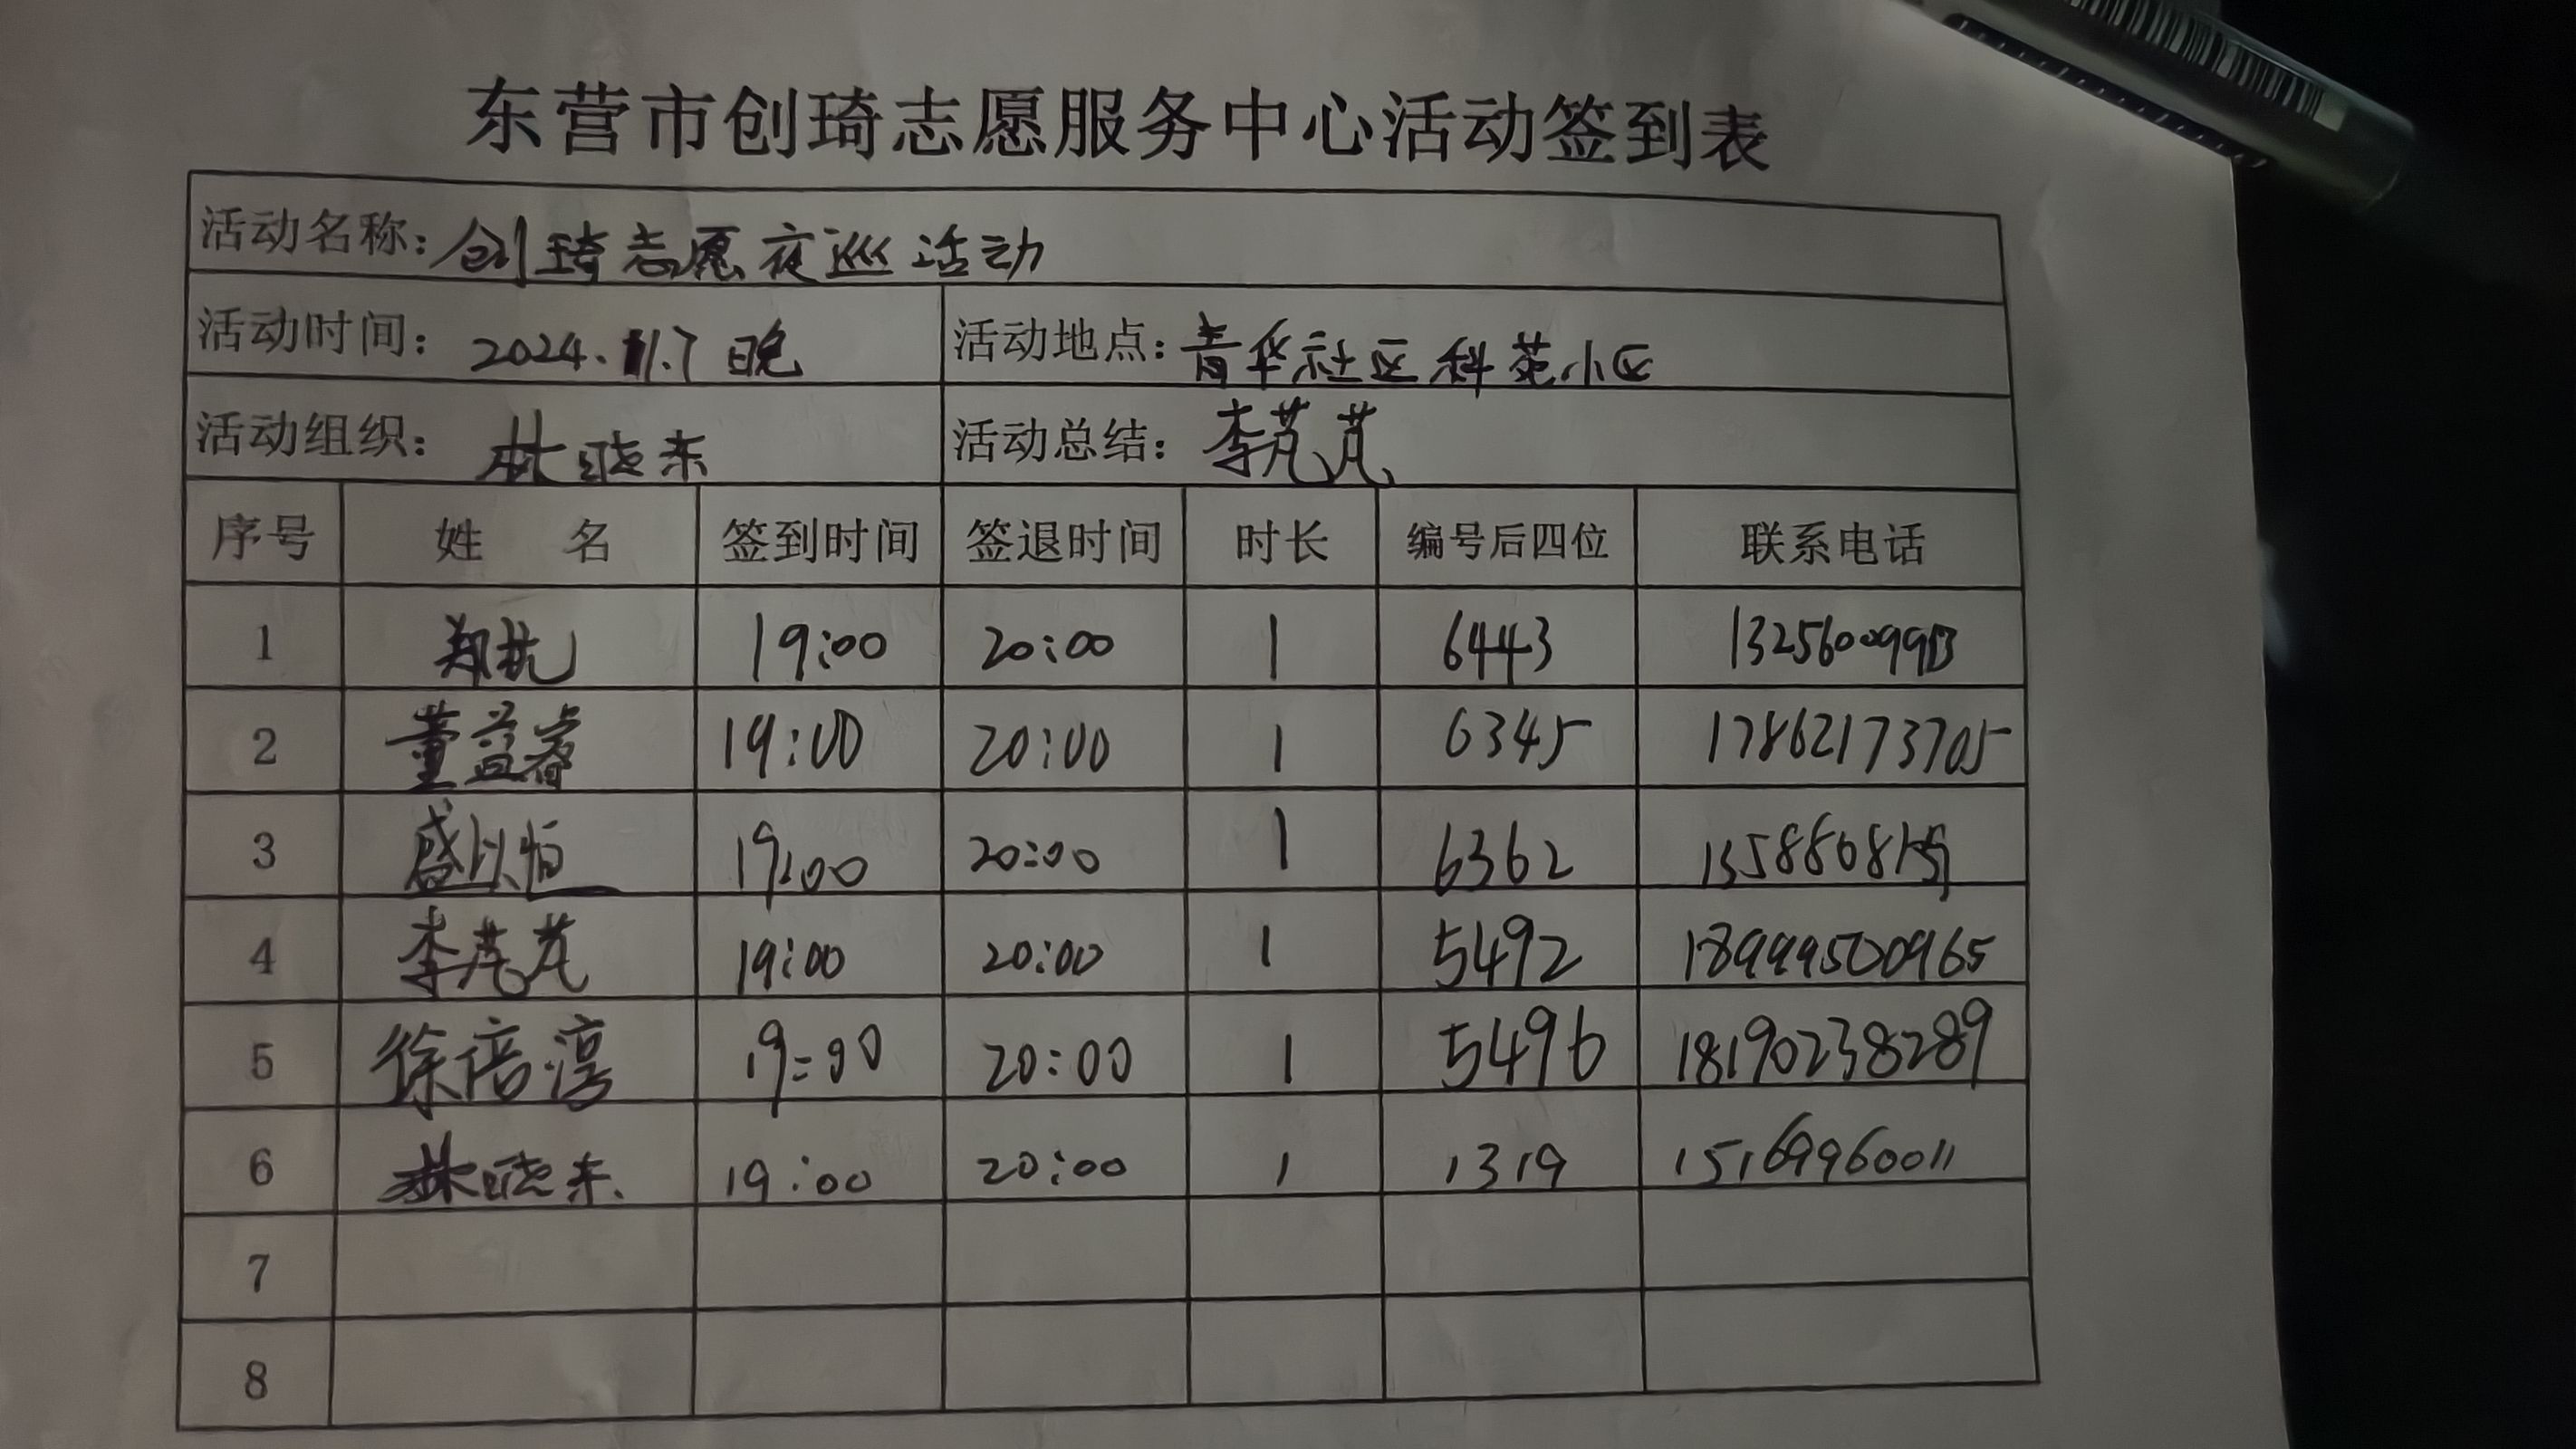 东营市创琦志愿服务中心活动签到表
活动名称：创琦志愿夜巡活动
活动时间：2024.11.7晚 活动地点：青华社区科苑小区
活动组织：林晓东 活动总结：李芃芃
序号 姓名 签到时间 签退时间 时长 编号后四位 联系电话
1 郑杭 19:00 20:00 1 6443
2 董益睿 19:00 20:00 1 6345 17862173705
3 盛以恒 19:00 20:00 1 6362
4 李芃芃 19:00 20:00 1 5492 18999500965
5 徐倍淳 19:00 20:00 1 5496 18190238289
6 林晓东 19:00 20:00 1 1319 15169960011
7
8